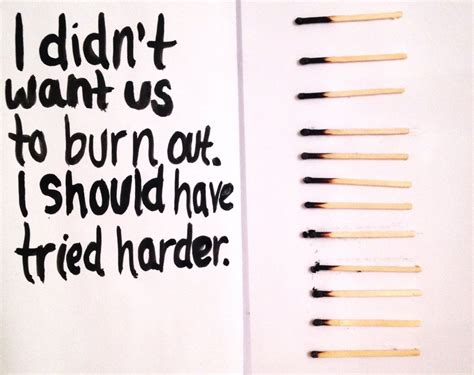 I didn't
want us
to burn out.
I should have
tried harder.